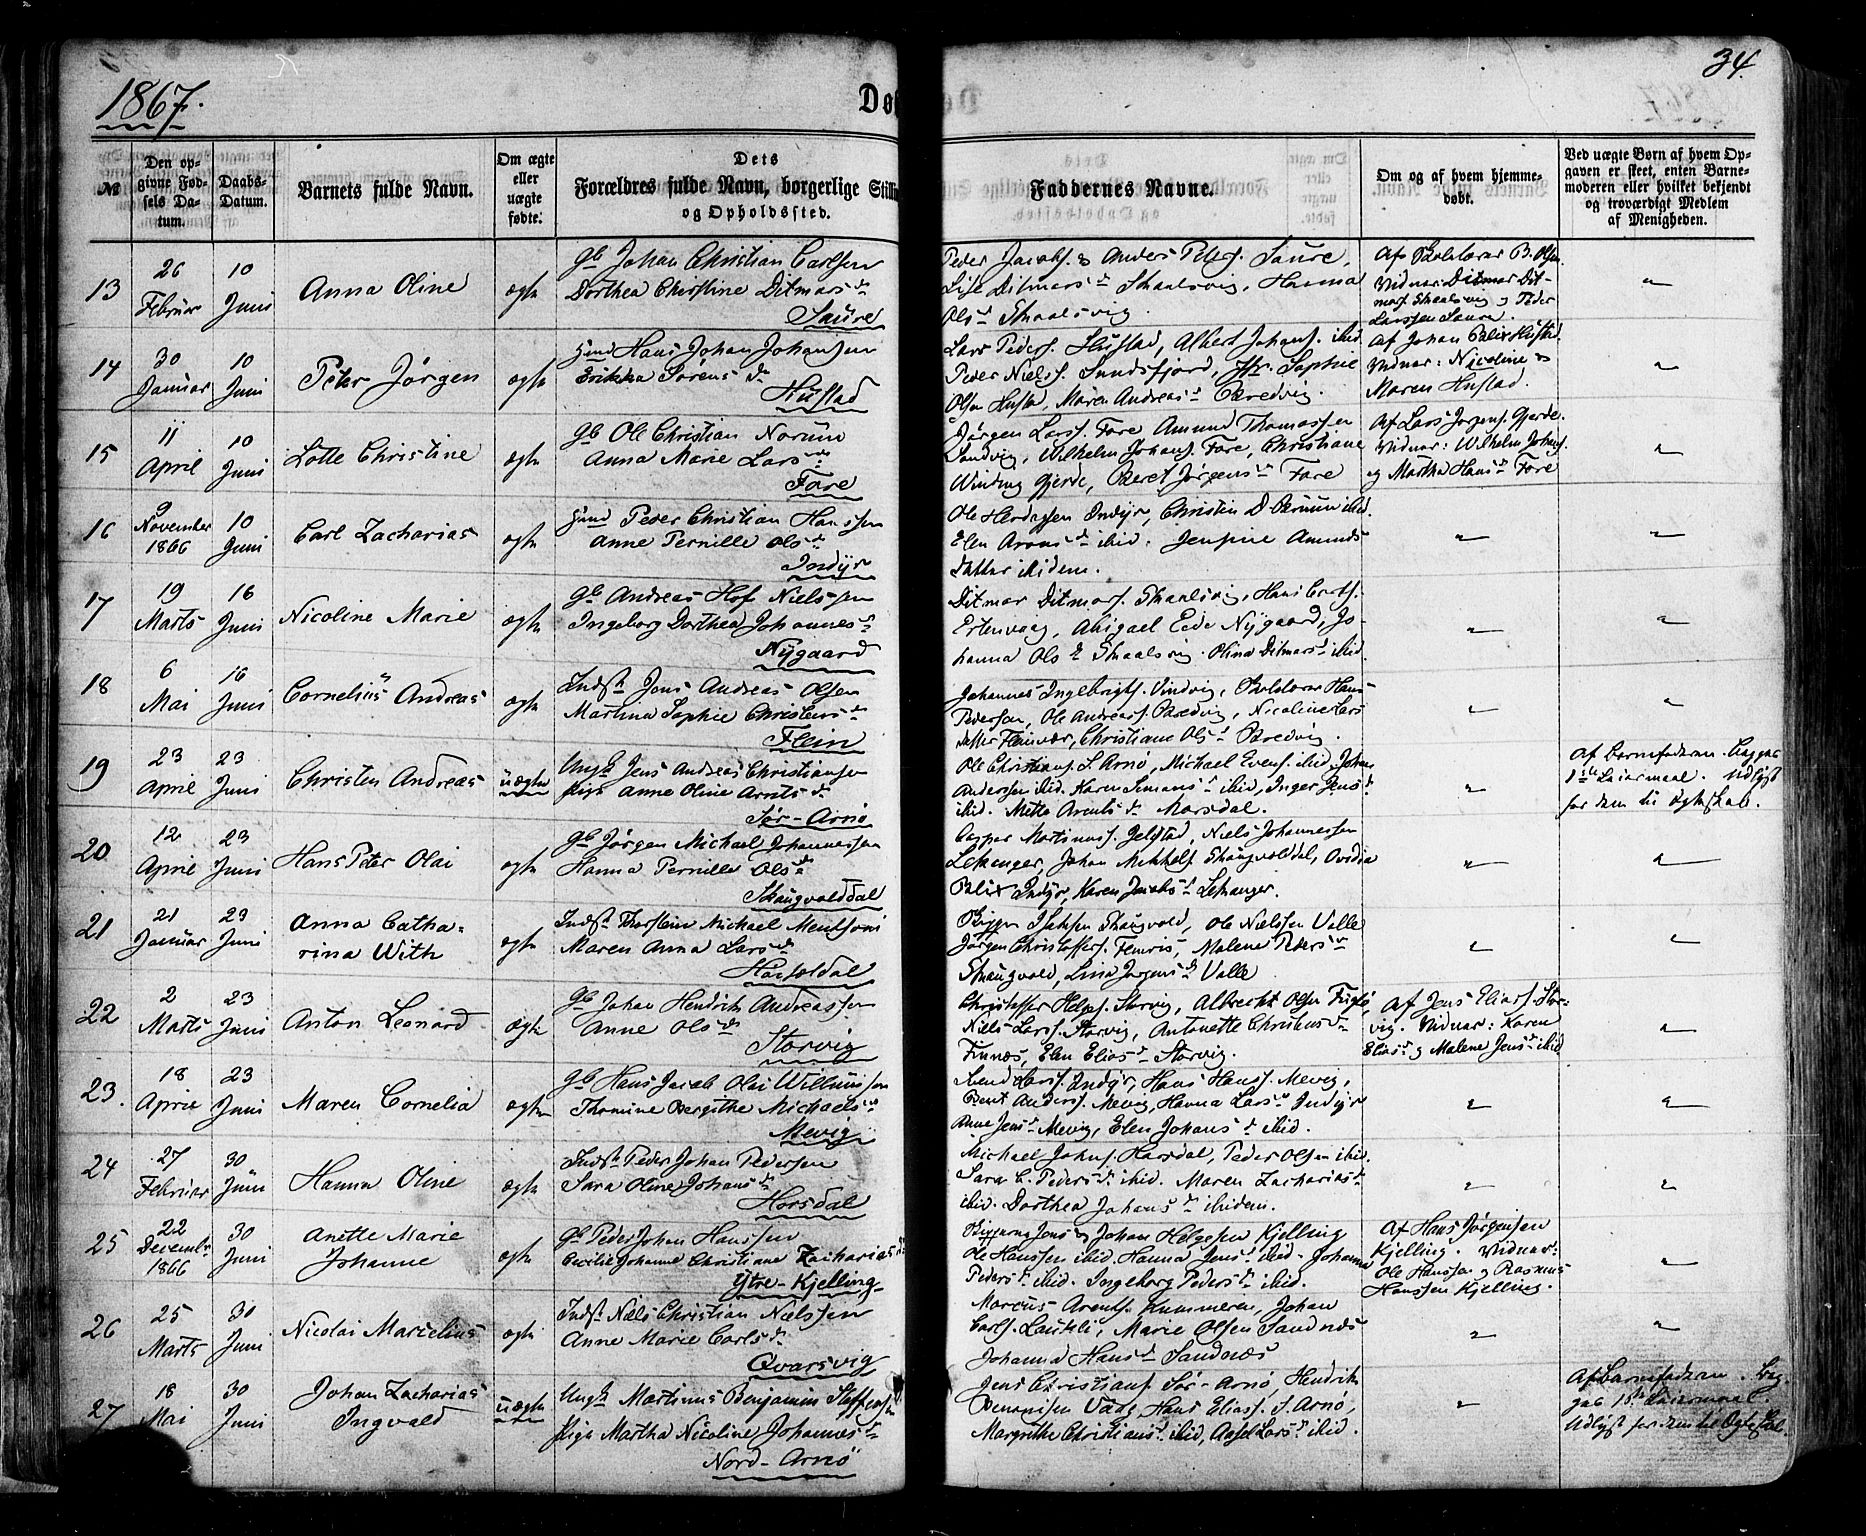 1867.
Dø
34.
№
Den op-
givne Fød-
sels Da-
tum.
Daabs-
Datum.
Barnets fulde Navn.
Om ægte
eller
uægte
fødte.
Dets
Forældres fulde Navn, borgerlige Still
og Opholdssted.
Faddernes Navne.
Om og af hvem hjemme-
døbt.
Ved uægte Børn af hvem Op-
gaven er skeet, enten Barne-
moderen eller hvilket bekjendt
og troværdigt Medlem
af Menigheden.
13
26
Februar
10
Juni
Anna Oline
ægte
Gb Johan Christian Carlsen
Dorthea Christine Ditmarsd.
Saura
Peder Jacobs. & Anders Peters. Saure,
Ditmarsd. Skaalsvig, Hanna
Olsd. Skaalsvig.
Vidner Ditmar Dit-
mars. Skaalsvig og Peder
Larssen Saura.
14
30
Januar
10
Juni
Peter Jørgen
ægte
Hans Johan Johansen
Erikka Sørensd.
Hustad
Lars Peders. Hustad, Albert Johans. ibid.
Peder Niels. Sundsfjord, Jfr. Sophie
Olsen Hustad, Maren Andreasd. Bredvig.
Af Johan Balix Hustad
Vidner: Nicoline &
Maren Hustad.
15
11
April
10
Juni
Lotte Christine
ægte
Gb Ole Christian Norum
Anna Marie Larsd.
Fore
Jørgen Larss. Fore Amund Thomassen
Sandvig, Wilhelm Johans. Fore, Christiane
Winding Gjerde, Beret Jørgensd. Fore
Af Lars Jørgens. Gjerde.
Vidner: Wilhelm Johans.
og Martha Hansd. Fore
16
9
November
1866
10
Juni
Carl Zacharias
ægte
Peder Christian Hanssen
Anne Pernille Olsd.
Indyr
Indyr, Christen ibid.
Elen Aronsd. ibid. Amunds
datter ibidem.
17
19
Marts
16
Juni
Nicoline Marie
ægte
Gb Andreas Hof Nielssen
Ingeborg Dorthea Johannesd.
Nygaard
Ditmar Ditmars. Skaalsvig, Hans
Abigael Nygaard, Jo-
hanna Olsd. Skaalsvig. Olina Ditmarsd. ibid.
18
6
Mai
16
Juni
Cornelius Andreas
ægte
Indst. Jens Andreas Olsen
Martina Sophie Christensd.
Flein
Johannes Ingebrigts. Vindvig, Hans
Pedersen, Ole Andreass. Bredvig, Nicoline Lars
datter Fleinvær, Christiane Olsd. Bredvig.
19
23
April
23
Juni
Christen Andreas
uægte
Ungk. Jens Andreas Christiansen
Pige Anne Oline Arntsd.
Sør-Arnø
Ole Christians. S. Arnø, Michael Evens. ibid. Johan
Anderssen ibid. Karen Simonsd. ibid, Inger Jensd.
ibid. Mette Arentsd. Morsdal.
Af Barnefaderen. Begges
1ste Leiermaal. Udlyst
for dem til Ægteskab.
20
12
April
23
Juni
Hans Peter Olai
ægte
Gb Jørgen Michael Johannessen
Hanna Pernille Olsd.
Skaugvolddal
Caspar Martinuss. Gjelstad, Niels Johannessen
Lekanger, Johan Mikkels. Skaugvolddal, Ovidia
Balix Indyr, Karen Jacobsd. Lekanger.
21
21
Januar
23
Juni
Anna Catha-
rina With
ægte
Indst. Thorstein Michael
Maren Anna Larsd.
Skaugvold, Ole Nielssen Valle
Jørgen Christoffers. Femris, Malene Pedersd.
Skaugvold, Lina Jørgensd. Valle
22
2
Marts
23
Juni
Anton Leonard
ægte
Gb Johan Hendrik Andreassen
Anne Olsd.
Storvig
Christoffer Helges. Storvig, Albrecht Olsen Fuglø,
Niels Larss. Storvig, Antonette Christensd.
Finnæs, Elen Eliasd. Storvig.
Af Jens Elias. Stor-
vig. Vidner: Karen
Eliasd. og Malene Jensd. ibid
23.
18
April
23
Juni
Maren Cornelia
ægte
Gb Hans Jacob Olai Willumsen
Thomine Bergithe Michaelsd.
Mevig
Larss. Indyr, Hans Hanss. Mevig,
Bent Anderss. Mevig, Hanna Larsd. Indyr
Anne Jensd. Mevig, Elen Johansd. ibid.
24
27
Februar
30
Juni
Hanna Oline
ægte
Indst. Peder Johan Pedersen
Sara Oline Johansd.
Horsdal
Michael Johns. Horsdal, Peder Olsen ibid.
Sara C. Pedersd. ibid. Maren Zachariasd.
ibid. Dorthea Johansd. ibidem.
25
22
Decembr
1866
30
Juni
Anette Marie
Johanne
ægte
Gb Peder Johan Hanssen
Cecilie Johanne Christiane Zachariasd.
Ytre-Kjelling
Jens & Johan Helgesen Kjelling
Ole Hanssen ibid. Hanna Jensd. ibid. Johanna
Pedersd. ibid. Ingeborg Pedersd. ibid.
Af Hans Jørgensen
Kjelling. Vidner:
Ole Hanssen og Rasmus
Hanssen Kjelling.
26
25
Marts
30
Juni
Nicolai Marcelius
ægte
Indst. Niels Christian Nielssen
Anne Marie Carlsd.
Qvarsvig
Marcus Arents. Johan
Carls. Marie Olsen Sandnæs
Johanna Hansd. Sandnæs
27
18
Mai
30
Juni
Johan Zacharias
Ingvald
uægte
Ungk. Martinus Benjamin Steffensen
Pige Martha Nicoline Johannesd.
Nord-Arnø
Jens Christians. Sør-Arnø, Hendrik
Benonisen Vaag, Hans Elias. S. Arnø,
Margrethe Christiansd. ibid, Larsd. ibid.
Af Barnefaderen. Beg-
ges 1ste Leiermaal
Udlyst for dem til Ægteskab.